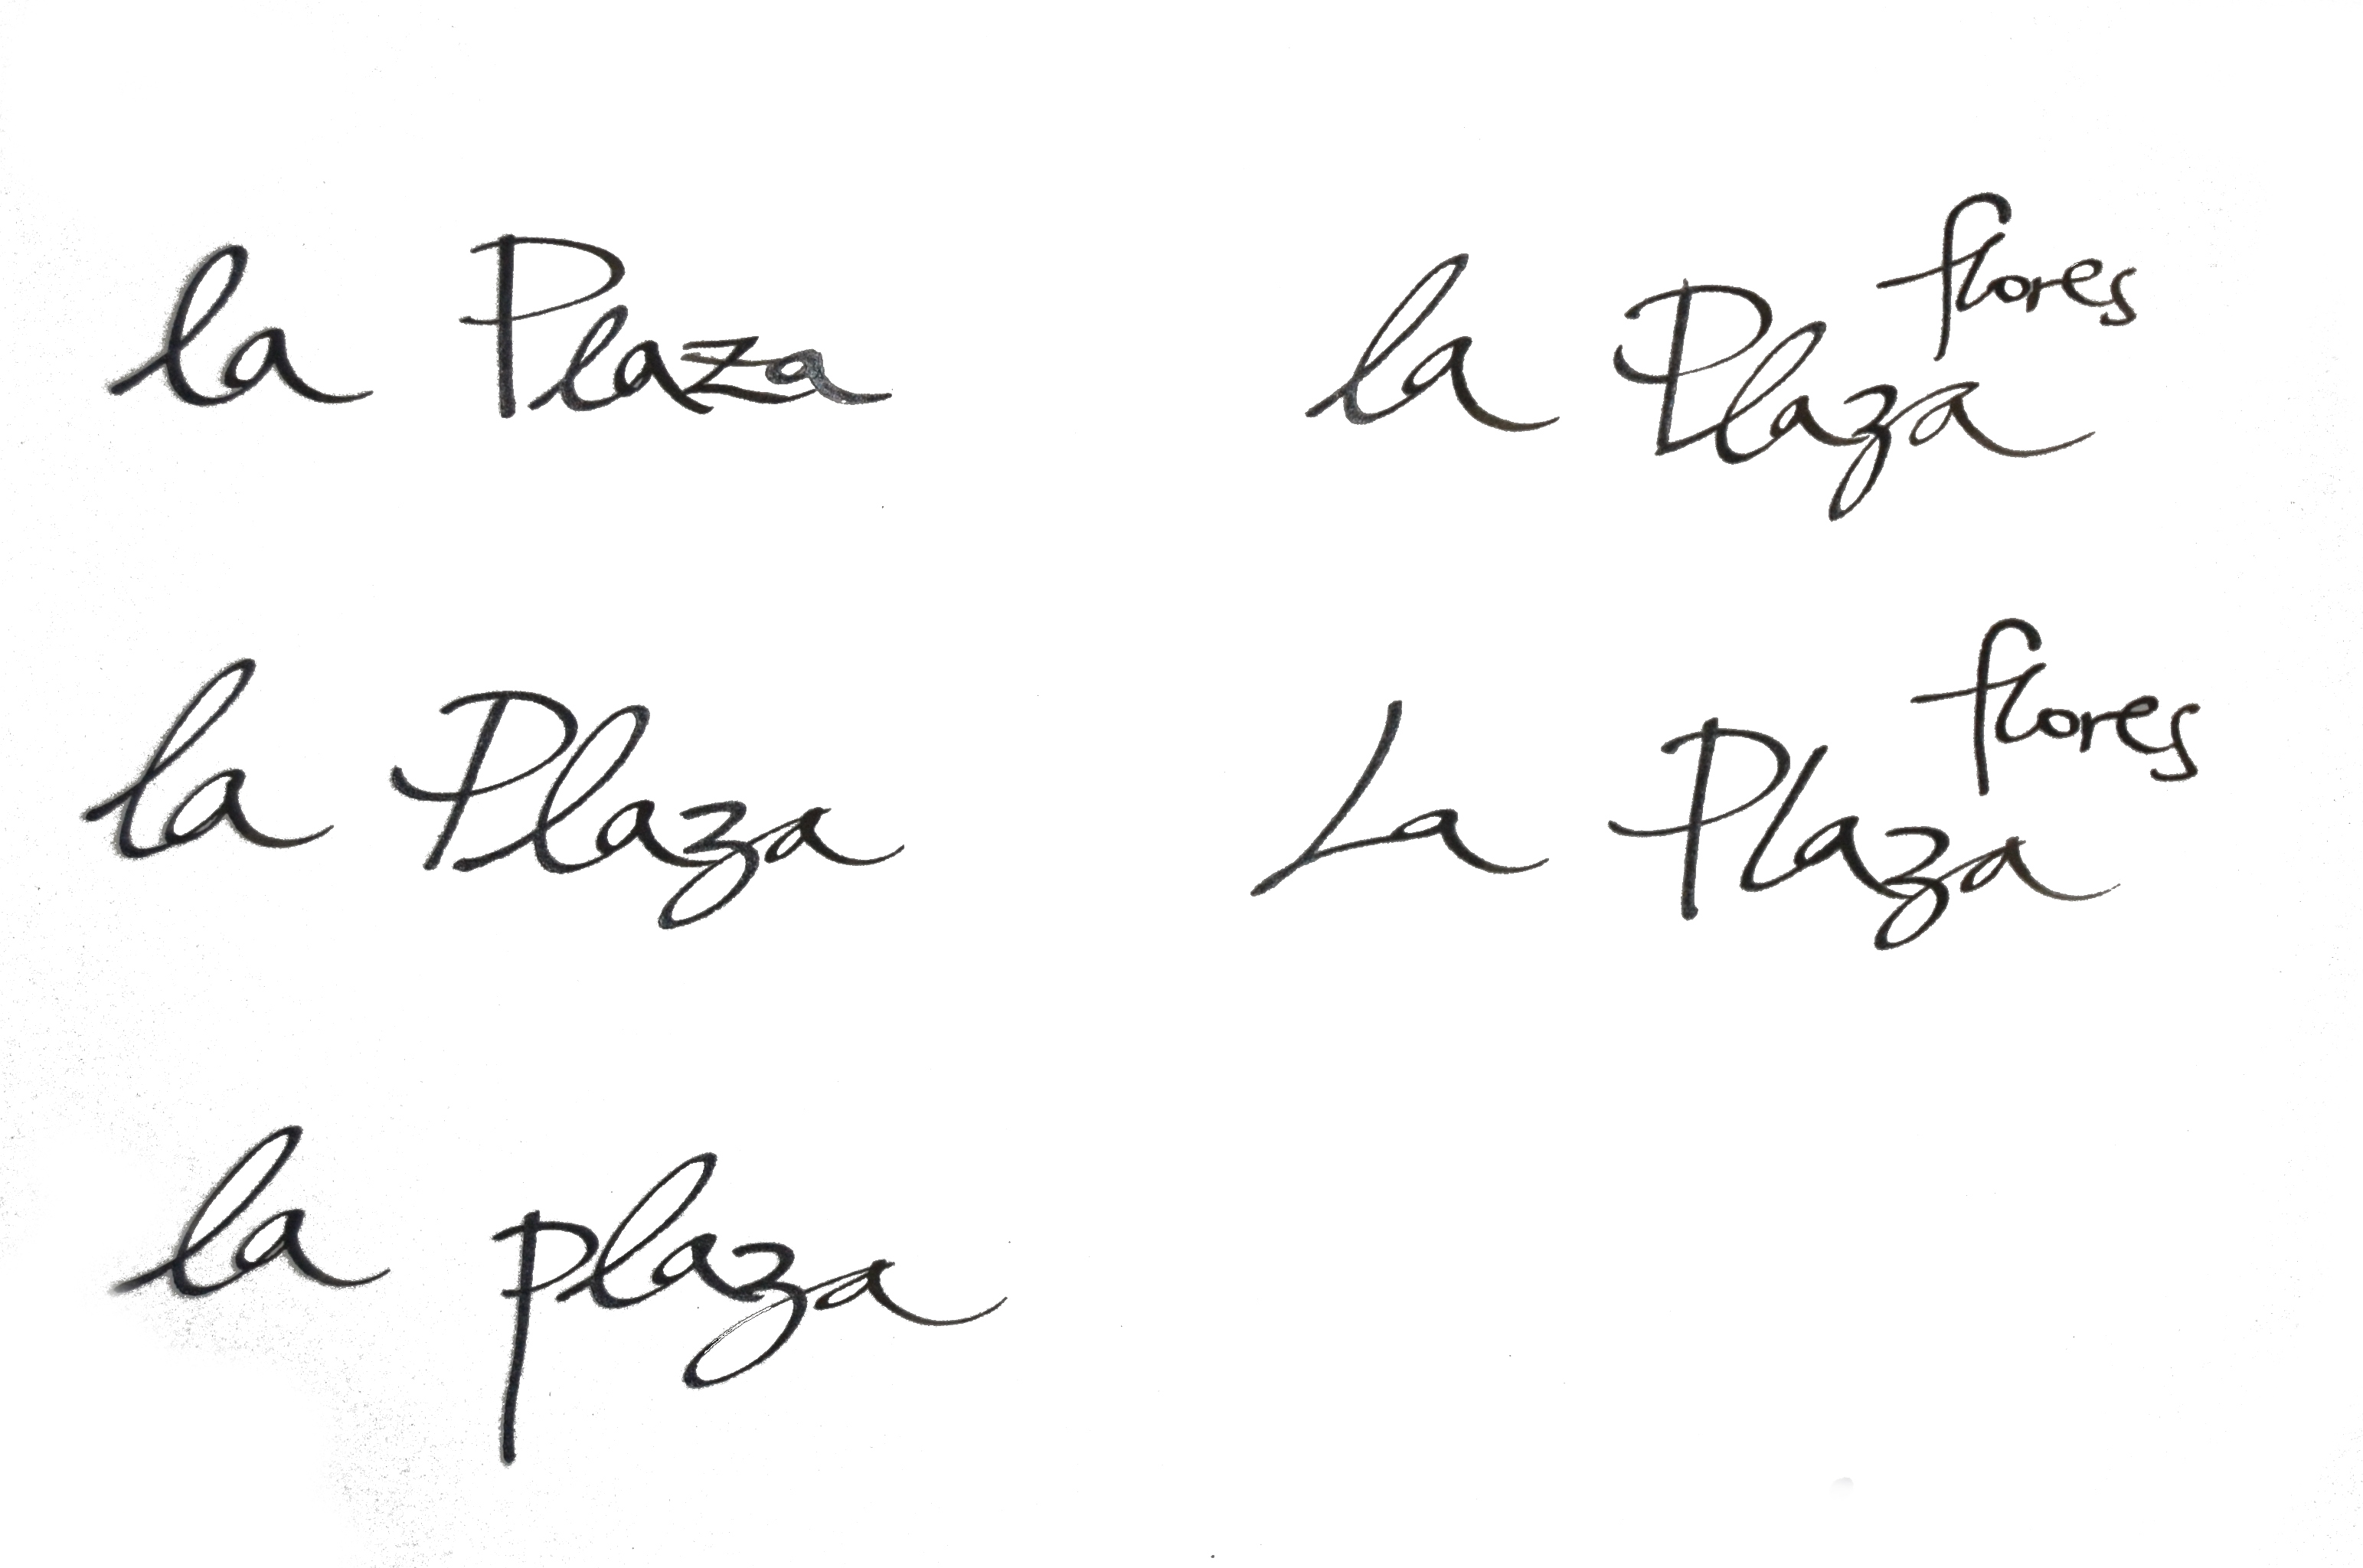 la Plaza
la Plaza flores
la Plaza
La Plaza flores
la plaza